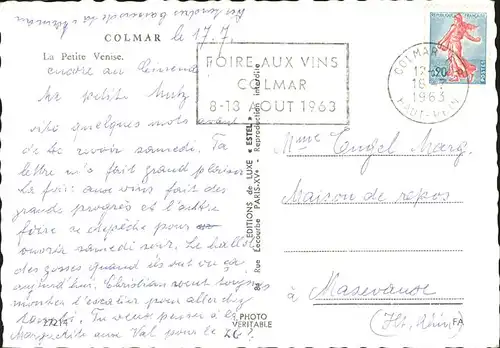 COLMAR le 17.7.
La Petite Venise.
encore au
Ma petite
vite quelques mots avant
de te revoir samedi. Ta
lettre m'a fait grand plaisir
La foire aux vins fait des
grands progrès et l'autre
foire se dépêche pour
ouvrir samedi soir. Le
des gosses quand ils ont vu ça
aujourd'hui. Christian veut toujours
monter l'escalier pour aller chez
Tu veux passer à la
Marguerite au Val pour le 26?
27214
PHOTO
VERITABLE
EDITIONS de LUXE « ESTEL »
84 Rue Lecourbe PARIS-XVe - Reproduction interdite
FOIRE AUX VINS
COLMAR
8-13 AOUT 1963
REPUBLIQUE FRANÇAISE
0,20
POSTES
COLMAR
17
1963
HAUT-RHIN
Mme Engel Marg.
Maison de repos
à Masevaux
(Ht. Rhin)
FA